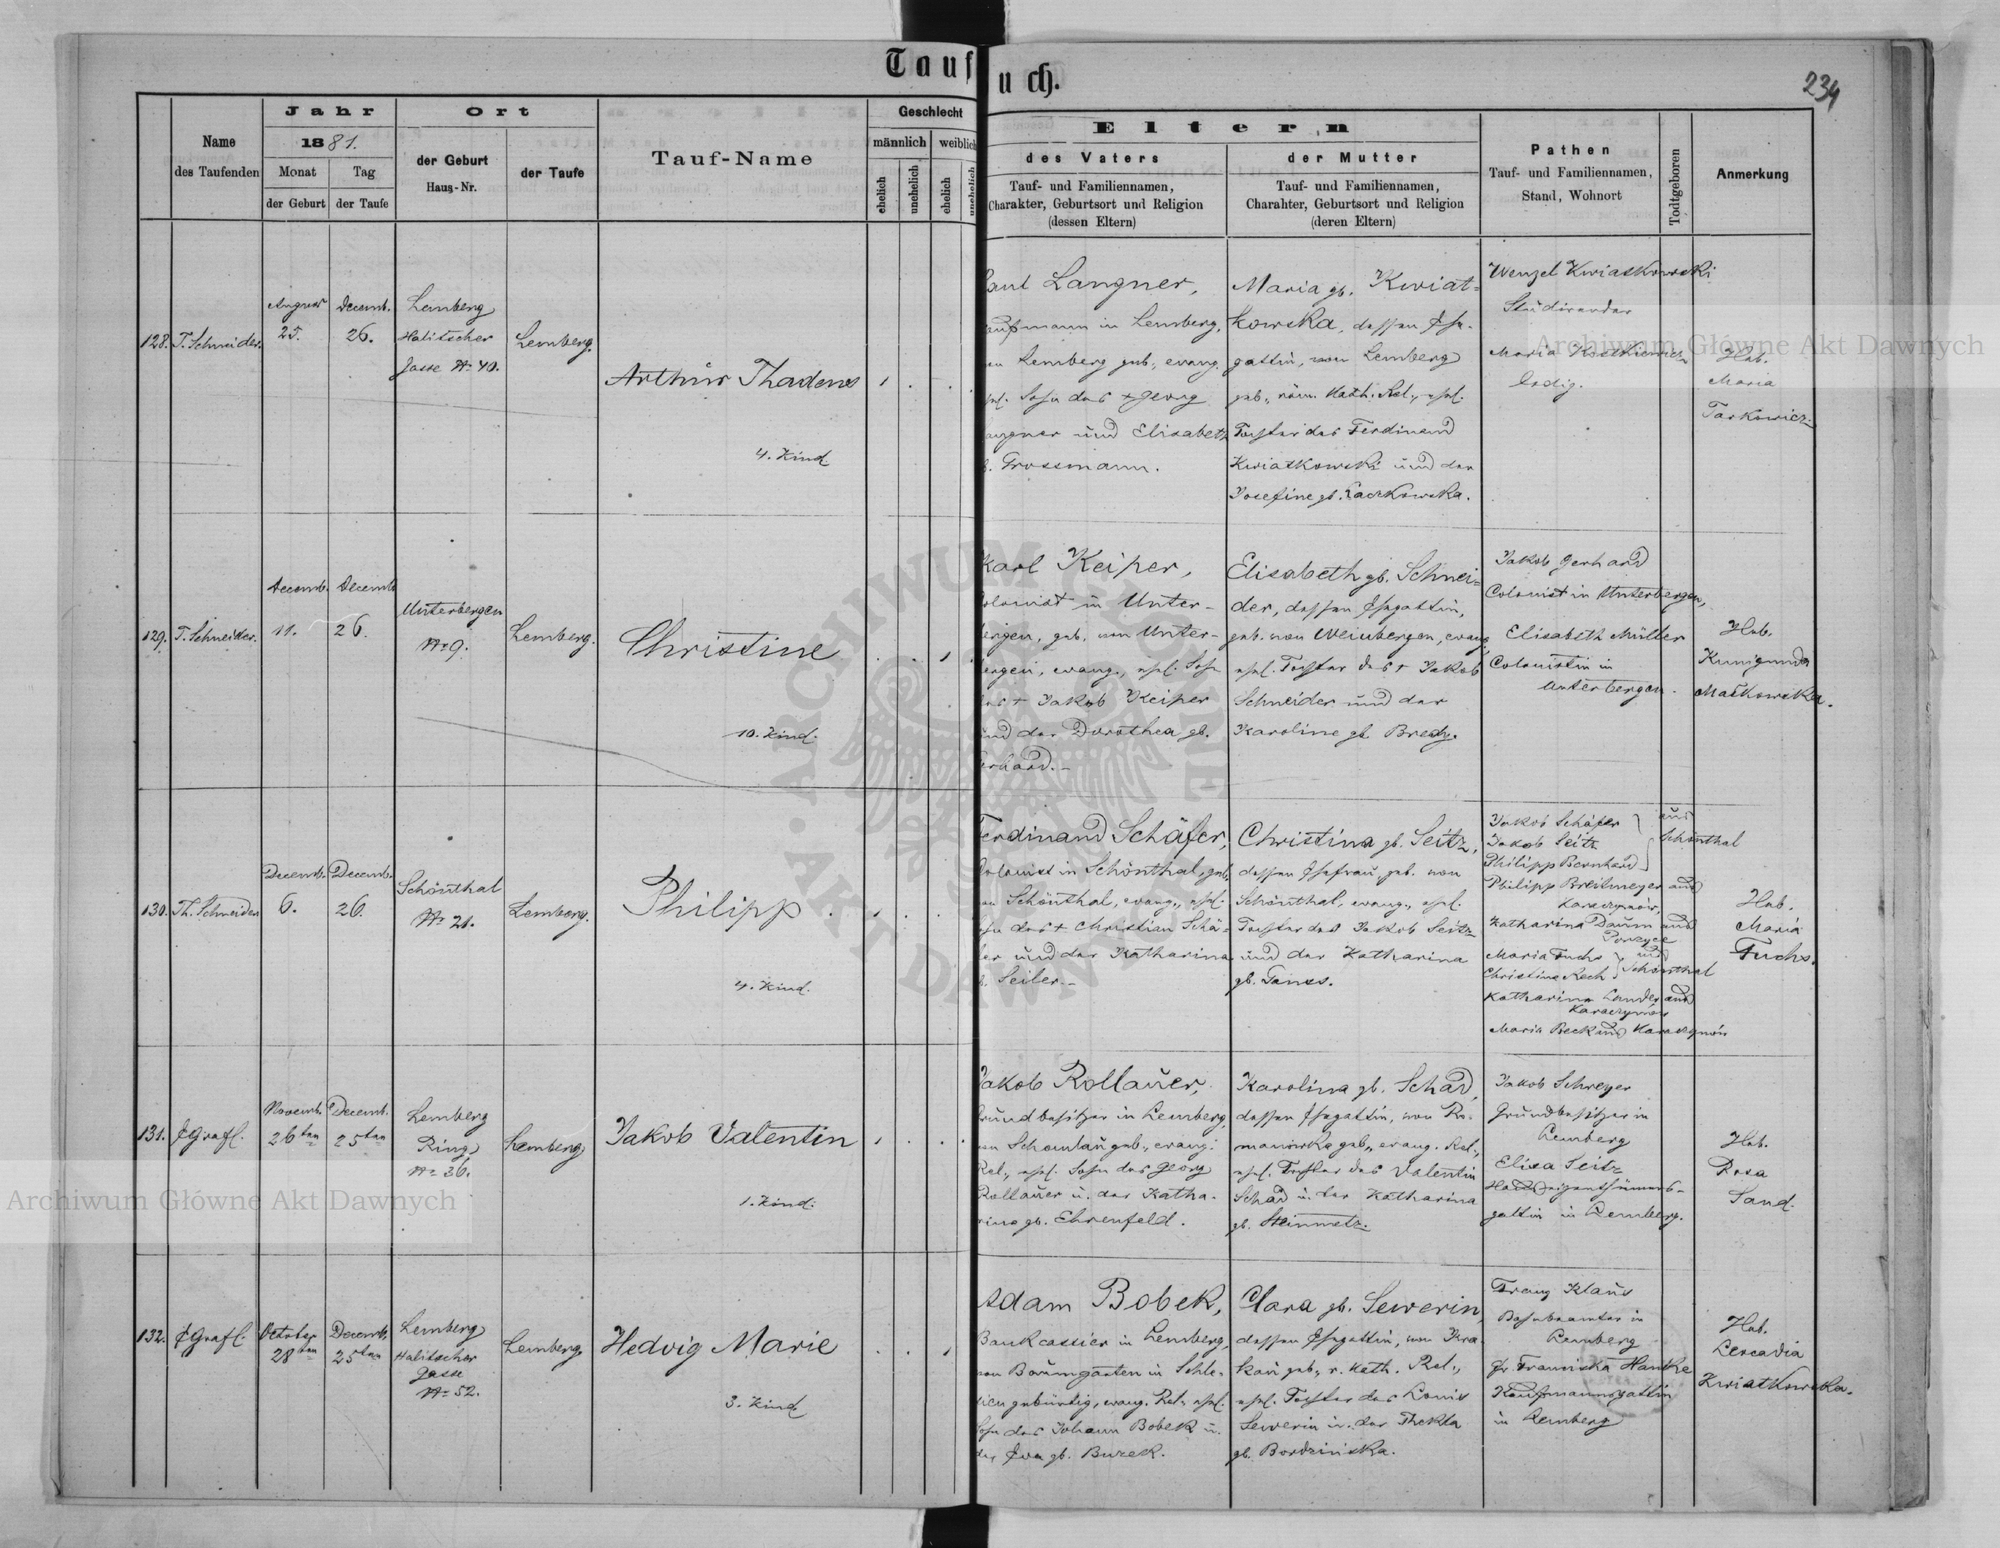 Tauf
uch.
234
Jahr
Ort
Geschlecht
Name
des Taufenden
1881.
Monat
Tag
der Geburt
der Taufe
der Geburt
Haus-Nr.
der Taufe
Tauf-Name
männlich
weiblich
ehelich
unehelich
ehelich
unehelich
Eltern
des Vaters
Tauf- und Familiennamen,
Charakter, Geburtsort und Religion
(dessen Eltern)
der Mutter
Tauf- und Familiennamen,
Charakter, Geburtsort und Religion
(deren Eltern)
Pathen
Tauf- und Familiennamen,
Stand, Wohnort
Todtgeboren
Anmerkung
128.
T. Schneider.
August
25.
Decemb.
26.
Lemberg
Halitscher
Gasse No 40.
Lemberg.
Arthur Thadeus
4. Kind
Paul Langner,
Kaufmann in Lemberg,
Lemberg geb., evang.
ehel. Sohn des + Georg
Langner und Elisabeth
gb. Grossmann.
Maria gb. Kwiat=
kowska, dessen Ehe-
gattin, von Lemberg
geb., röm. Kath. Rel., ehel.
Tochter des Ferdinand
Kwiatkowski und der
Josefine gb. Laczkowska.
Wenzel Kwiatkowski
Studirender
Maria Kostkiewicz
ledig.
Heb.
Maria
Tarkowicz.
129.
T. Schneider.
Decemb.
11.
Decemb.
26.
Unterbergen
No 9.
Lemberg.
Christine
10. Kind.
Karl Keiper,
Colonist in Unter-
bergen, geb. von Unter-
bergen, evang., ehel. Sohn
des + Jakob Keiper
und der Dorothea gb.
Gerhard.-
Elisabeth gb. Schnei=
der, dessen Ehegattin,
geb. von Weinbergen, evang.
ehel. Tochter des + Jakob
Schneider und der
Karoline gb. Brech.
Jakob Gerhard
Colonist in Unterbergen,
Elisabeth Müller
Colonistin in
Unterbergen.
Heb.
Kunigunda
Maćkowska.
130.
Th. Schneider
Decemb.
6.
Decemb.
26.
Schönthal
No 21.
Lemberg.
Philipp
4. Kind.
Ferdinand Schäfer,
Colonist in Schönthal, geb.
von Schönthal, evang., ehel.
Sohn des + Christian Schä-
fer und der Katharina
gb. Seiler.-
Christina gb. Seitz,
dessen Ehefrau, geb. von
Schönthal, evang., ehel.
Tochter des Jakob Seitz
und der Katharina
gb. Tans.
Jakob Schäfer
Jakob Seitz
Philipp Bernhard
aus
Schönthal
Philipp Breitmeyer aus
Karaczynów,
Katharina Daum aus
Porzyce
Maria Fuchs
Christina Rech
aus
Schönthal
Katharina Lander aus
Karaczynów
Maria Beck aus Karaczynów
Heb.
Maria
Fuchs.
131.
Novemb.
26ten
Decemb.
25ten
Lemberg
Ring
No 36.
Lemberg
Jakob Valentin
1. Kind.
Jakob Rollauer,
Grundbesitzer in Lemberg,
von Schomlau geb., evang.
Rel., ehel. Sohn des Georg
Rollauer u. der Katha-
rina gb. Ehrenfeld.
Karolina gb. Schad,
dessen Ehegattin, von Ro-
manówka geb., evang. Rel.,
ehel. Tochter des Valentin
Schad u. der Katharina
gb. Steinmetz.
Jakob Schreyer
Grundbesitzer in
Lemberg
Elisa Seitz
Hauseigenthümers-
gattin in Lemberg.
Heb.
Rosa
Sand.
132.
October
28ten
Decemb.
25ten
Lemberg
Halitscher
Gasse
No 52.
Lemberg
Hedvig Marie
3. Kind
Adam Bobek,
Bankcassier in Lemberg,
von Baumgarten in Schle-
sien gebürtig, evang. Rel., ehel.
Sohn des Johann Bobek u.
der Eva gb. Buzek.
Clara gb. Sewerin,
dessen Ehegattin, von Kra-
kau geb., r. kath. Rel.,
ehel. Tochter des Louis
Sewerin u. der Thekla
gb. Bordzinska.
Franz Klaus
Bahnbeamter in
Lemberg
Fr Franziska Hanke
Kaufmannsgattin
in Lemberg
Heb.
Leocadia
Kwiatkowska.
Archiwum Główne Akt Dawnych
Archiwum Główne Akt Dawnych
ARCHIWUM GŁÓWNE AKT DAWNYCH